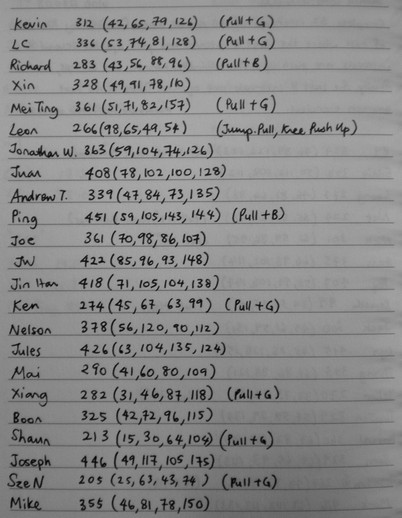 Kevin 312 (42, 65, 79, 126) (Pull+G)
LC 336 (53, 74, 81, 128) (Pull+G)
Richard 283 (43, 56, 88, 96) (Pull+B)
Xin 328 (49, 91, 78, 110)
Mei Ting 361 (51, 71, 82, 157) (Pull+G)
Leon 266 (98, 65, 49, 54) (Jump.Pull, Knee Push Up)
Jonathan W. 363 (59, 104, 74, 126)
Juan 408 (78, 102, 100, 128)
Andrew T. 339 (47, 84, 73, 135)
Ping 451 (59, 105, 143, 144) (Pull+B)
Joe 361 (70, 98, 86, 107)
JW 422 (85, 96, 93, 148)
Jin Han 418 (71, 105, 104, 138)
Ken 274 (45, 67, 63, 99) (Pull+G)
Nelson 378 (56, 120, 90, 112)
Jules 426 (63, 104, 135, 124)
Mai 290 (41, 60, 80, 109)
Xiang 282 (31, 46, 87, 118) (Pull+G)
Boon 325 (42, 72, 96, 115)
Shaun 213 (15, 30, 64, 104) (Pull+G)
Joseph 446 (49, 117, 105, 175)
Sze N 205 (25, 63, 43, 74) (Pull+G)
Mike 355 (46, 81, 78, 150)